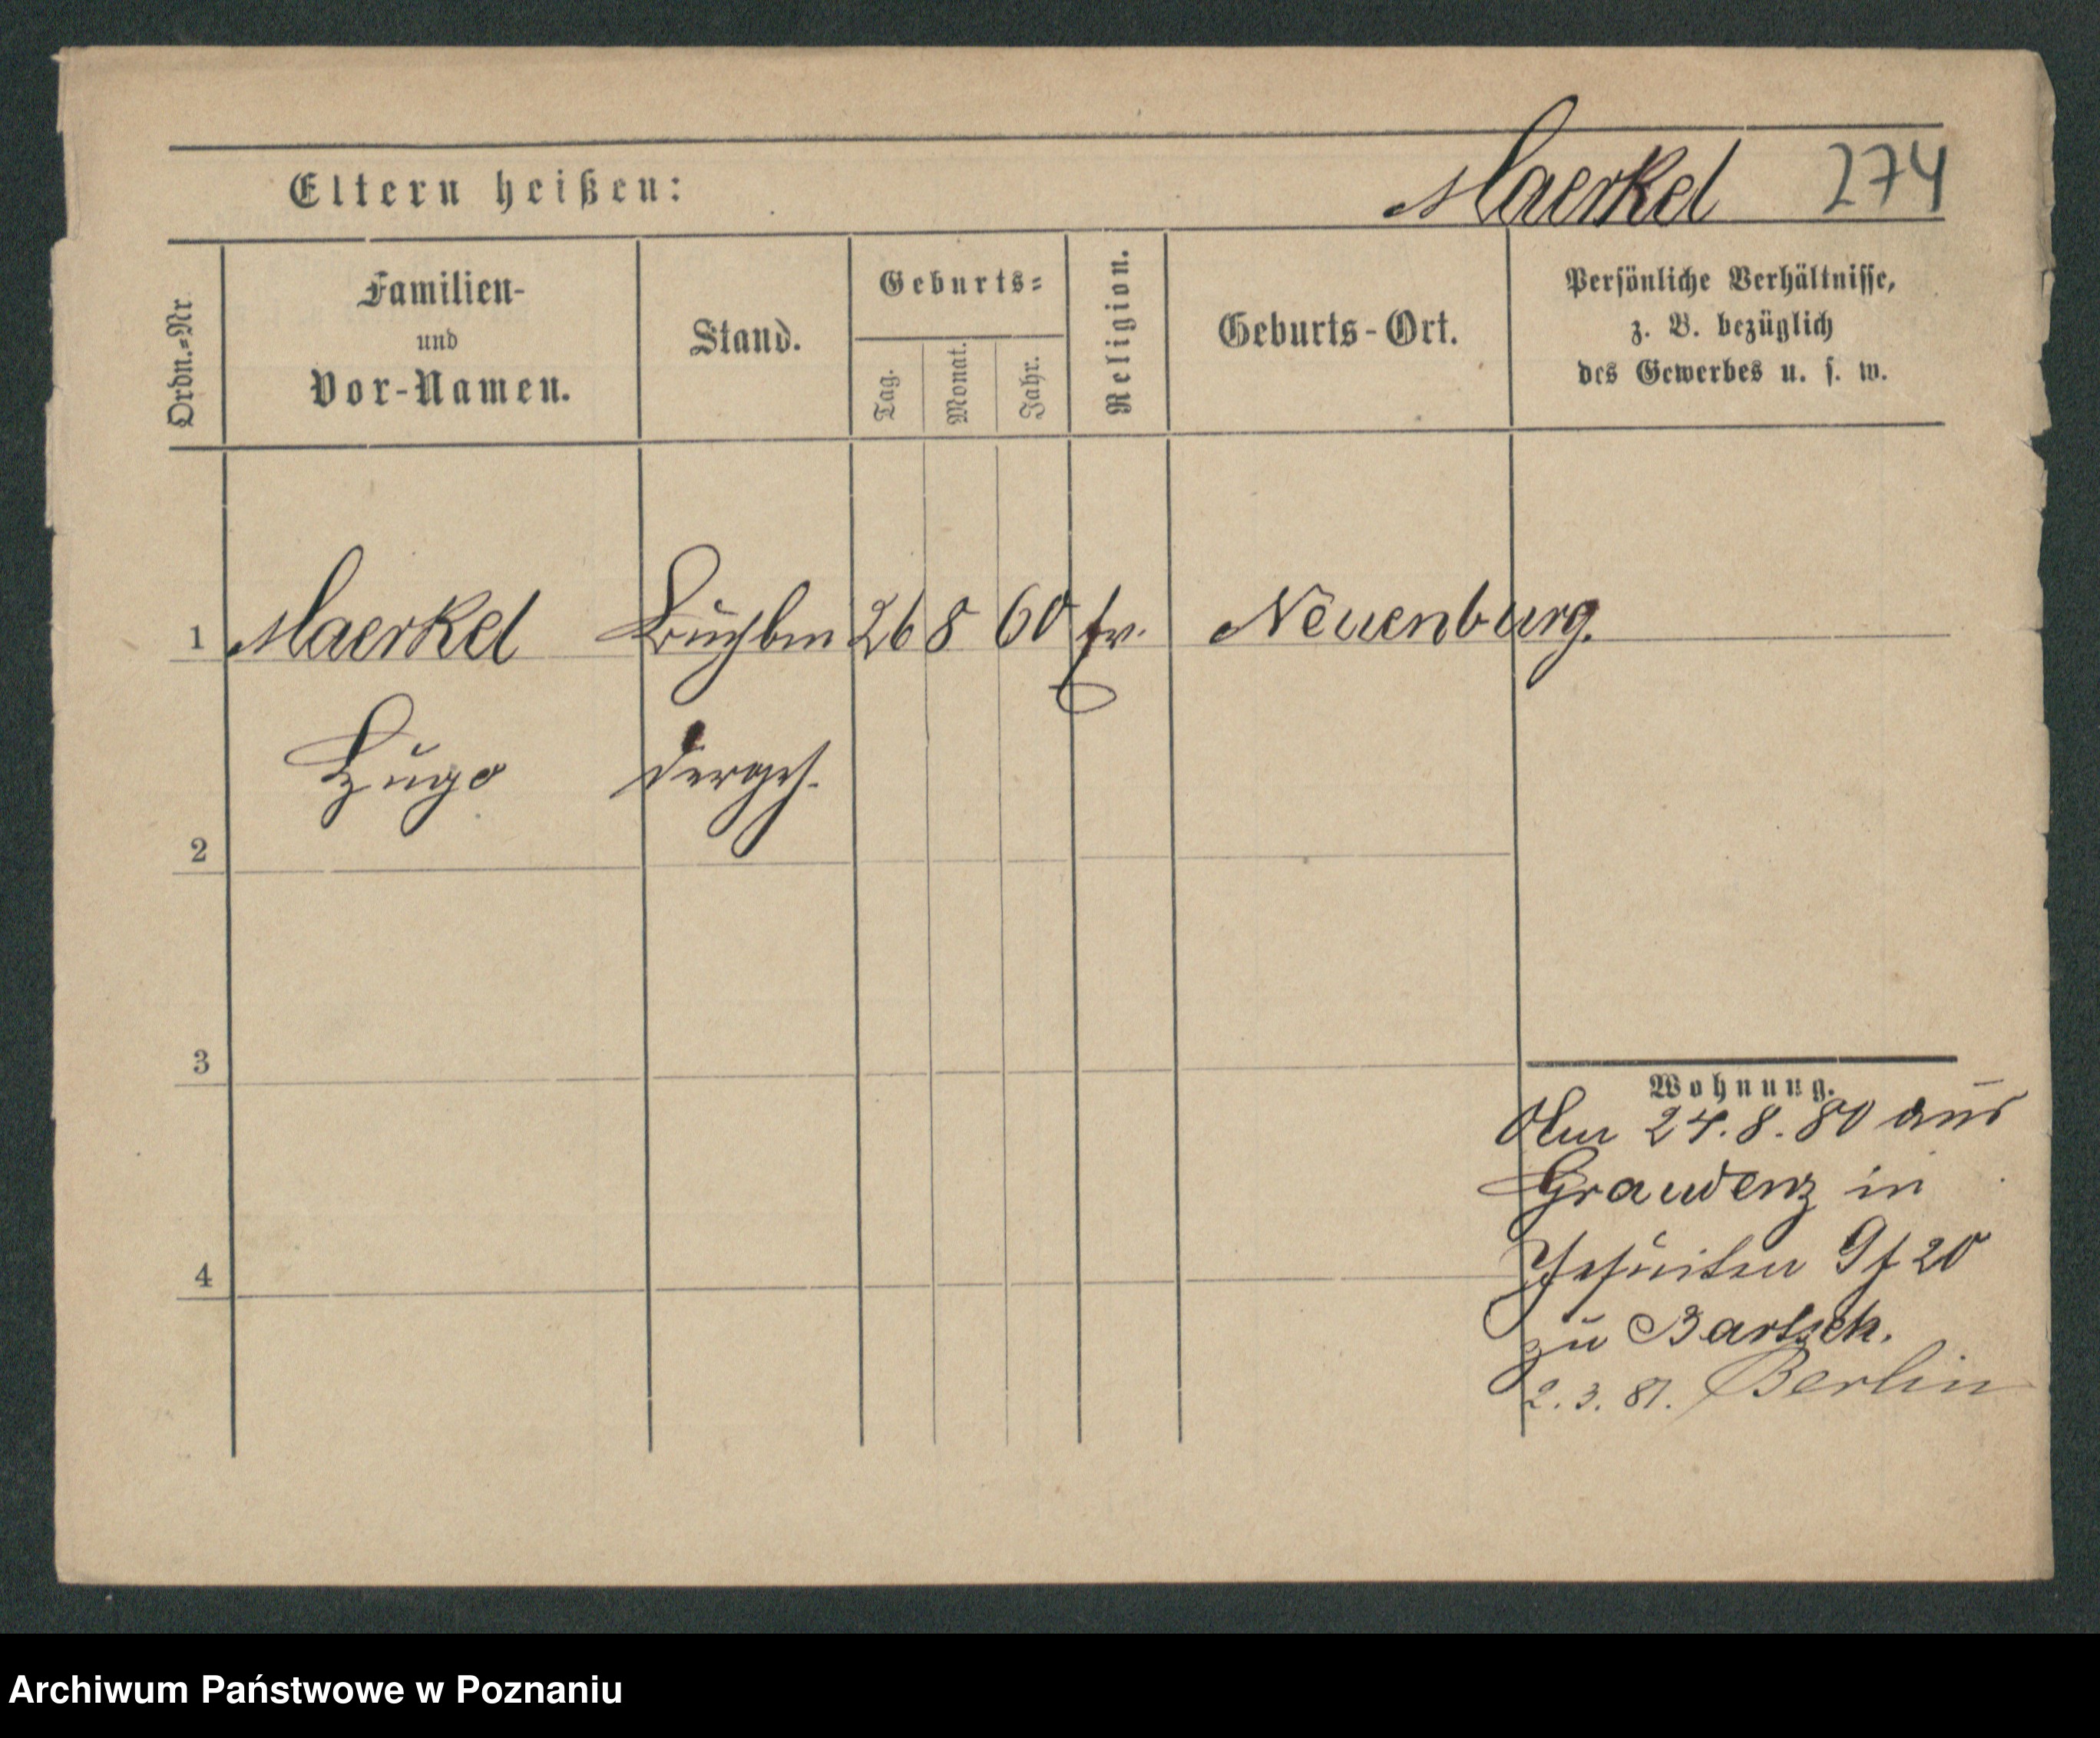 Eltern heißen: Maerkel 274
Ordn.-Nr
Familien-
und
Vor-Namen.
Stand.
Geburts-
Tag.
Monat.
Jahr.
Religion.
Geburts-Ort.
Persönliche Verhältnisse,
z. B. bezüglich
des Gewerbes u. s. w.
1 Maerkel 26 8 60 Neuenburg.
Hugo
2
3
Wohnung.
Am 24.8.80 aus
Graudenz in
4 Jesuiten 9 20
zu Bartsch.
2.3.81. Berlin
Archiwum Państwowe w Poznaniu